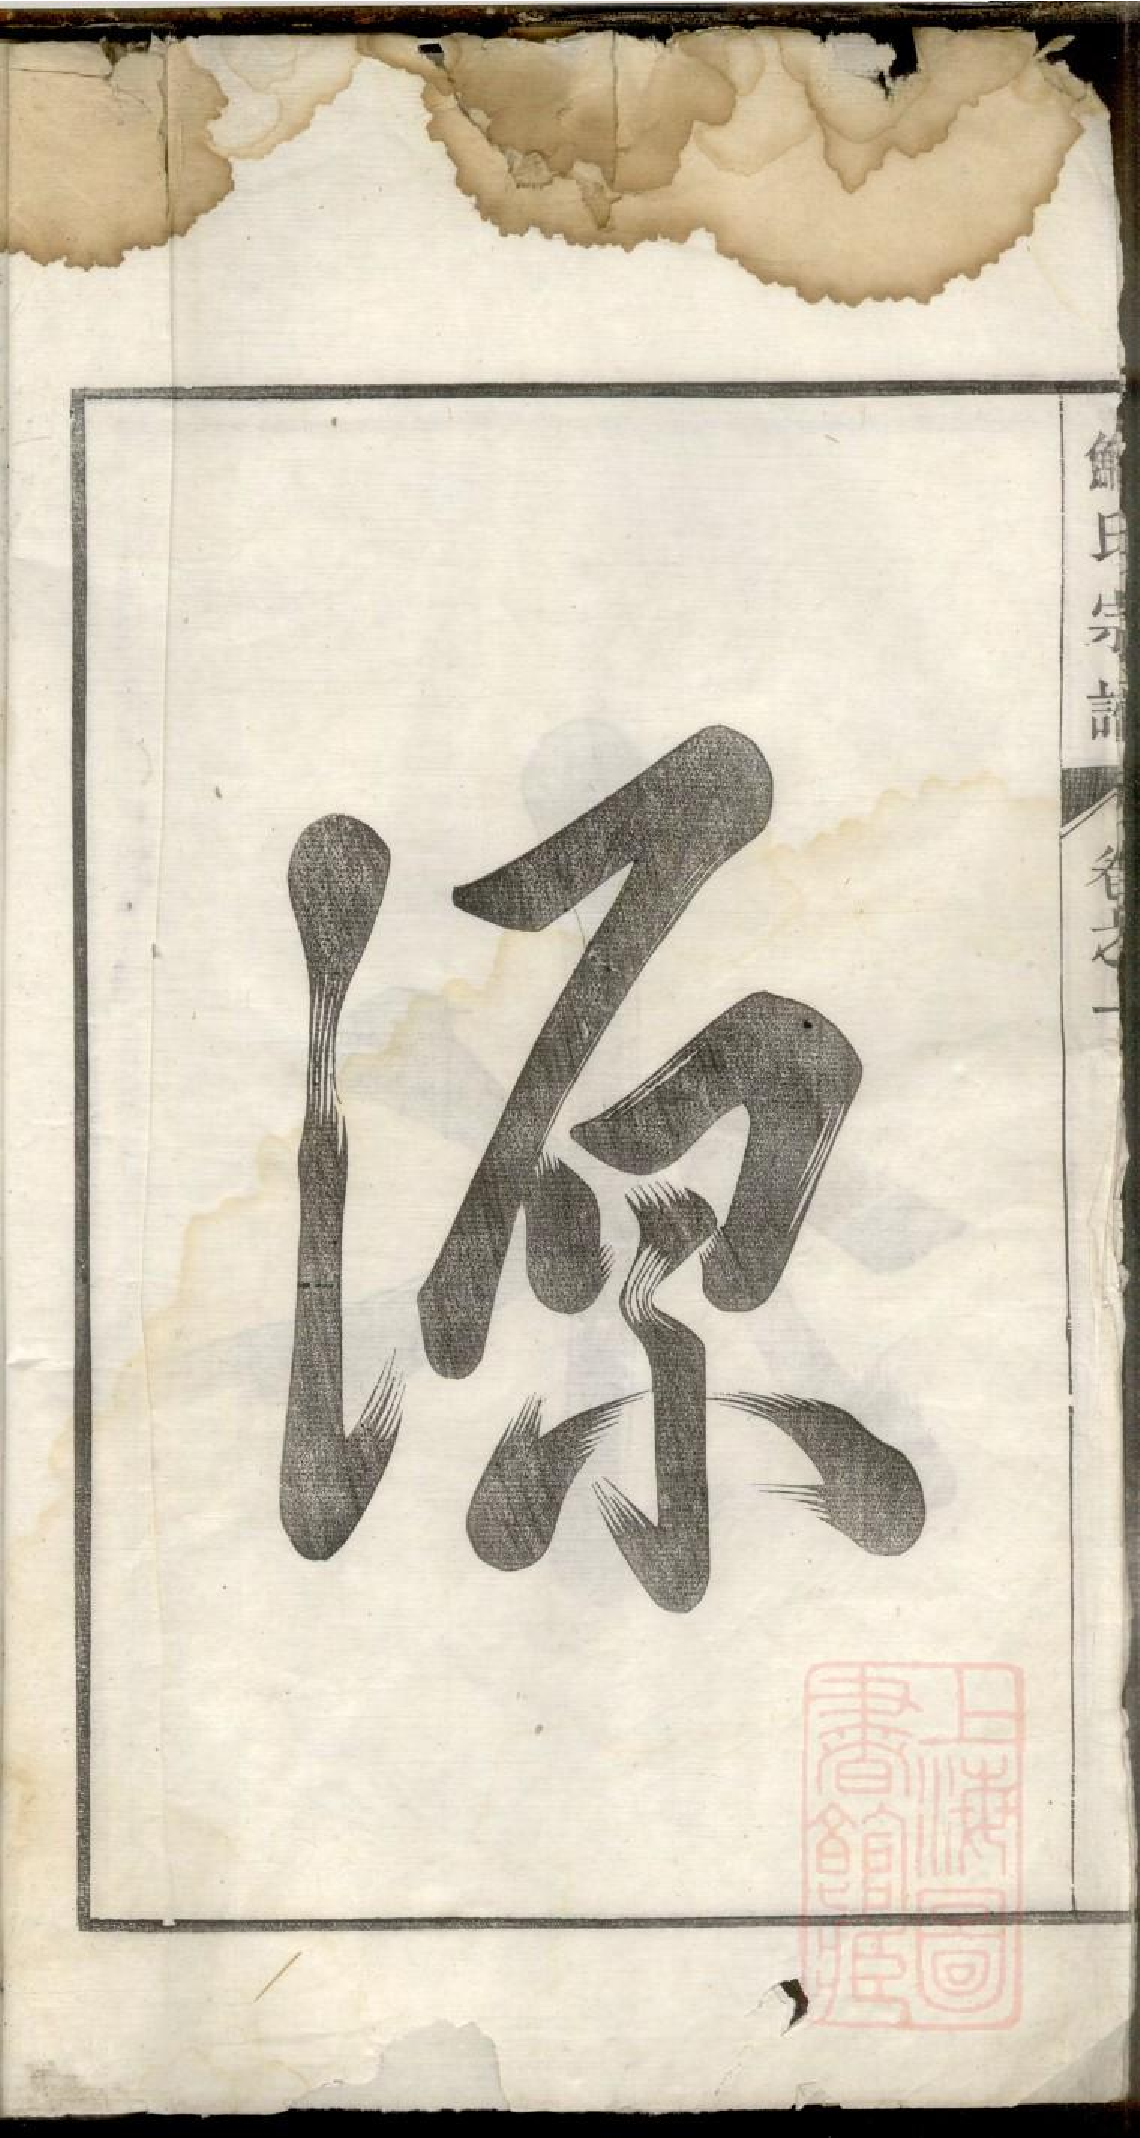 氏宗譜 卷之
源
上海圖
書館藏